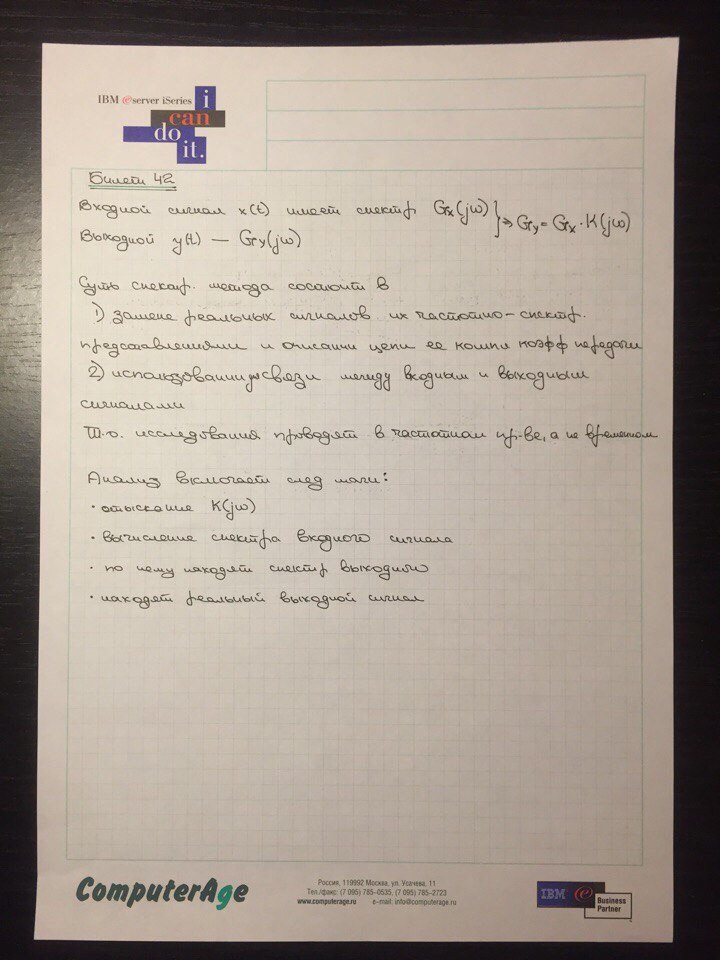 IBM @server iSeries
i
can
do
it.
Билет 42
Входной сигнал x(t) имеет спектр Gx(jω) } => Gy = Gx · K(jω)
Выходной y(t) — Gy(jω)
Суть спектр. метода состоит в
1) замене реальных сигналов их частотно-спектр.
представлениями и описании цепи ее компл коэфф передачи
2) использовании связи между входным и выходным
сигналами
Т.о. исследования проводят в частотном пр-ве, а не временном
Анализ включает след шаги:
· отыскание K(jω)
· вычисление спектра входного сигнала
· по нему находят спектр выходного
· находят реальный выходной сигнал
ComputerAge
Россия, 119992 Москва, ул. Усачева, 11
Тел./факс: (7 095) 785–0535, (7 095) 785–2723
www.computerage.ru e-mail: info@computerage.ru
IBM
Business
Partner